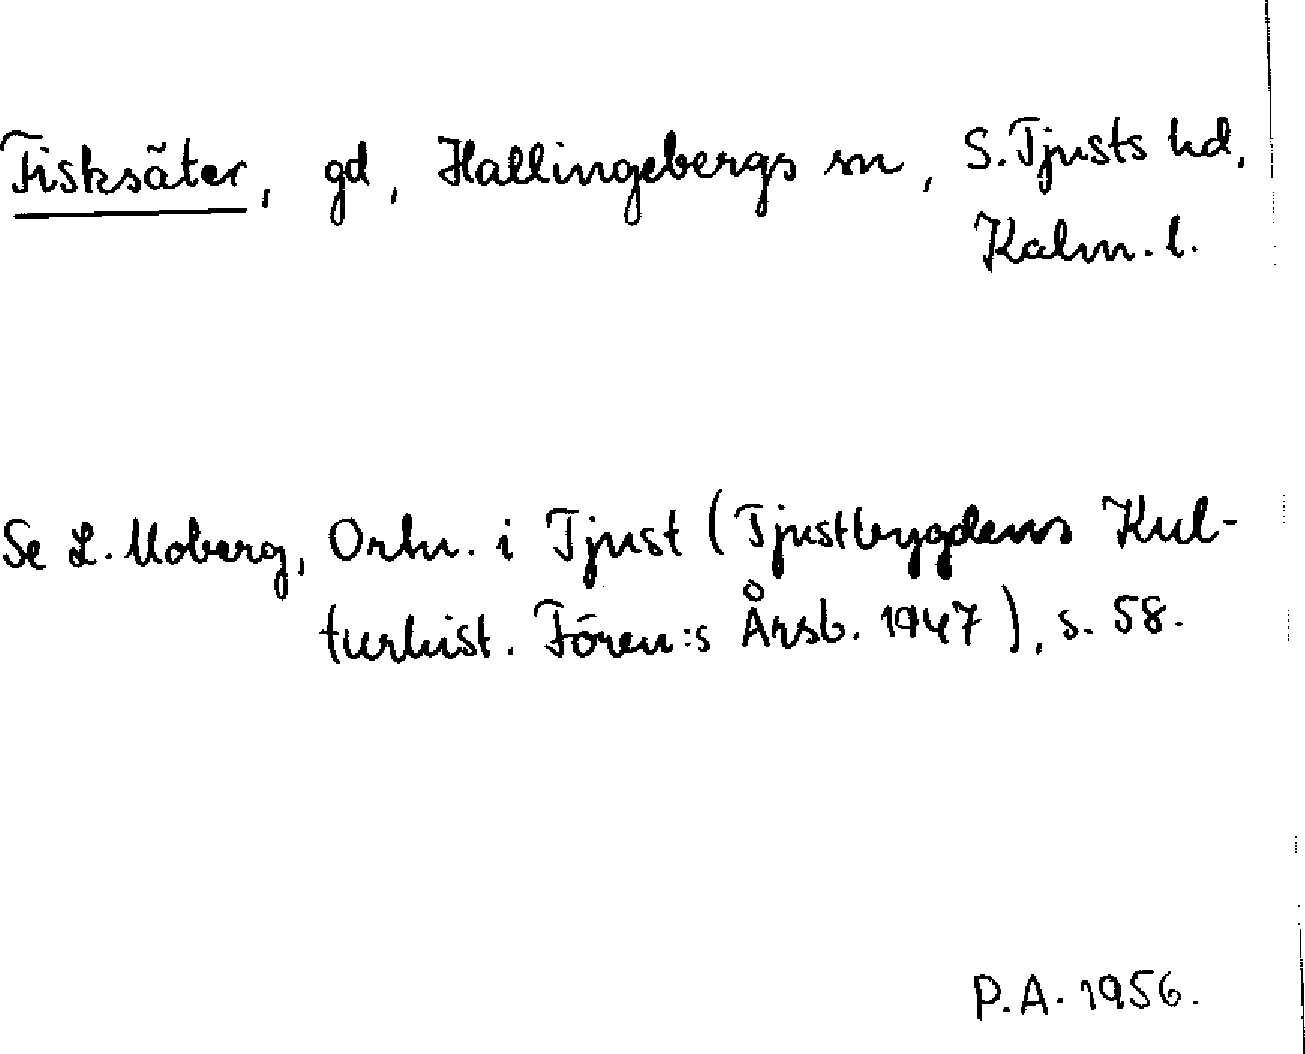 Fisksäter, gd, Hallingebergs sn, S. Tjusts hd,
Kalm. l.
Se L. Moberg, Ortn. i Tjust (Tjustbygdens Kul-
turhist. Fören:s Årsb. 1947), s. 58.
P.A. 1956.